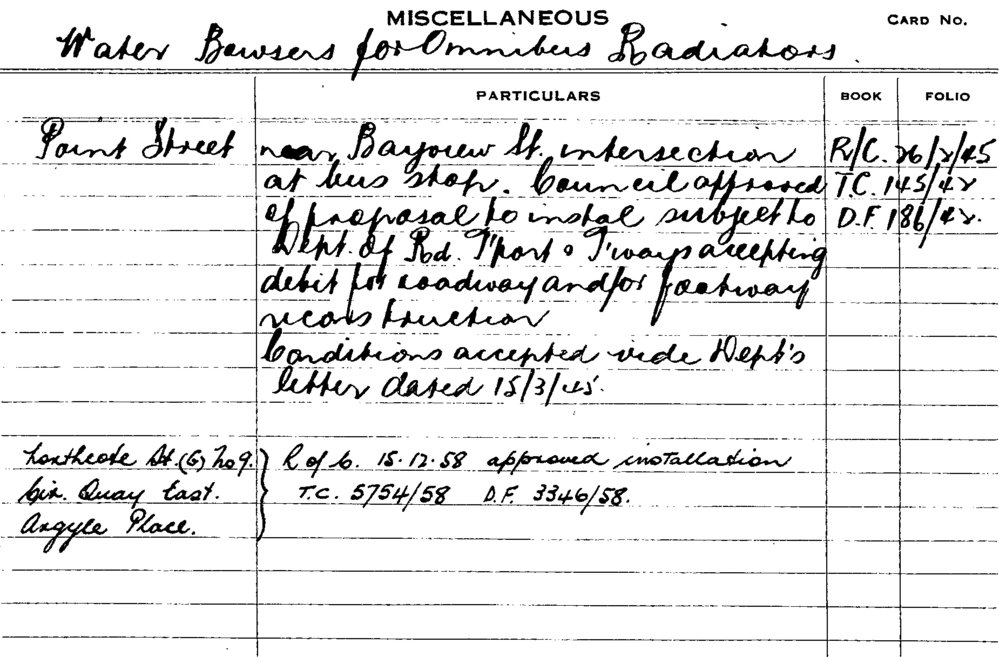 MISCELLANEOUS
CARD No.
Water Bowsers for Omnibus Radiators.
PARTICULARS BOOK FOLIO
Point Street near Bayview St. intersection R/C. 26/2/45
at bus stop. Council approved T.C. 145/42
of proposal to instal subject to D.F. 186/42.
Dept. of Rd. T'port & T'ways accepting
debit for roadway and/or footway
reconstruction
Conditions accepted vide Dept's
letter dated 15/3/45.
Northcote St. (G) No 9. } R of C. 15.12.58 approved installation
Cir. Quay East. T.C. 5754/58 D.F. 3346/58.
Argyle Place.